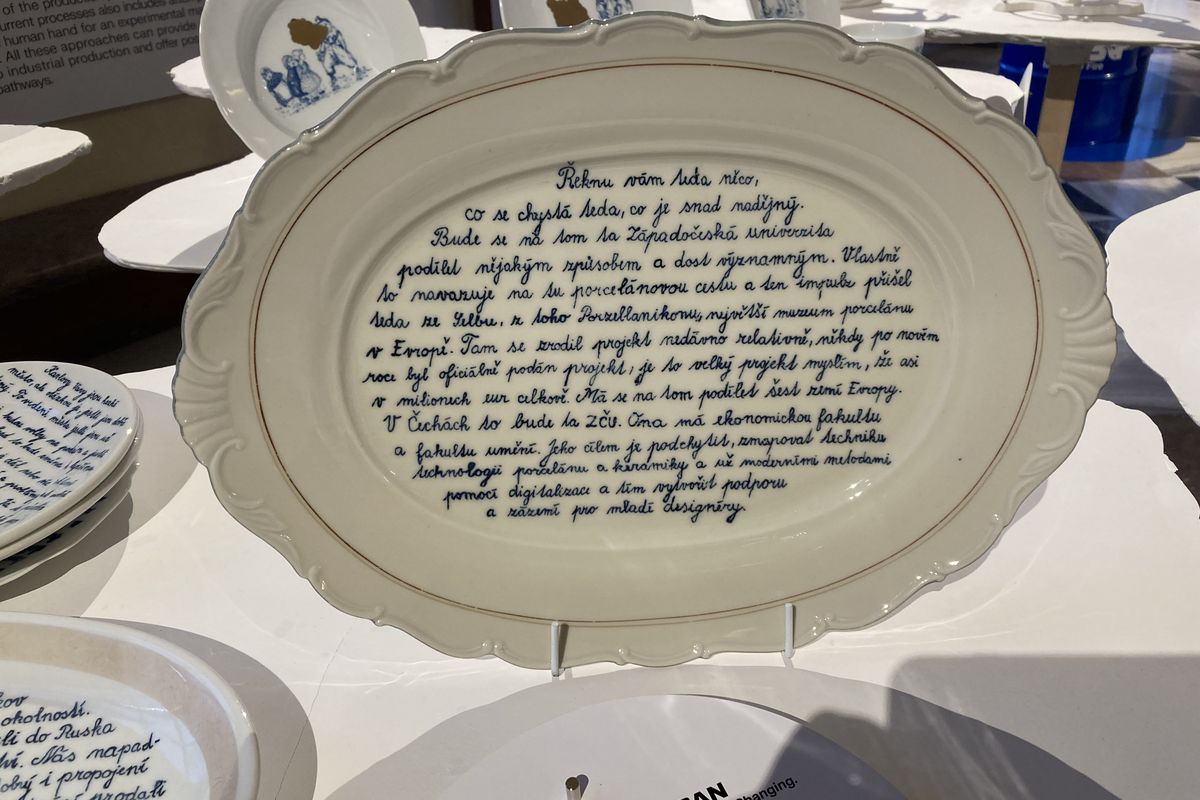 of the produc
urrent processes also includes
human hand for an experimental
All these approaches can provide
industrial production and offer
pathways.
Řeknu vám teda něco,
co se chystá teda, co je snad nadějný.
Bude se na tom ta Západočeská univerzita
podílet nějakým způsobem a dost významným. Vlastně
to navazuje na tu porcelánovou cestu a ten impulz přišel
teda ze Selbu, z toho Porzellanikonu, největší muzeum porcelánu
v Evropě. Tam se zrodil projekt nedávno relativně, někdy po novém
roce byl oficiálně podán projekt, je to velký projekt myslím, že asi
v milionech eur celkově. Má se na tom podílet šest zemí Evropy.
V Čechách to bude ta ZČU. Ona má ekonomickou fakultu
a fakultu umění. Jeho cílem je podchytit, zmapovat techniku
technologii porcelánu a keramiky a už moderními metodami
pomocí digitalizace a tím vytvořit podporu
a zázemí pro mladé designéry.
kov
okolností.
li do Ruska
tví. Nás napad-
obrý i propojení
prodali
PAN
changing.